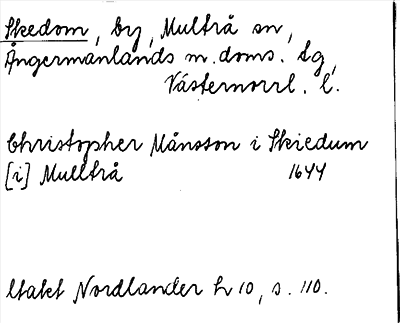 Skedom, by, Multrå sn,
Ångermanlands m. doms. tg,
Västernorrl. l.
Christopher Månsson i Skiedum
[i] Mulltrå 1644
Utakt Nordlander h 10, s. 110.